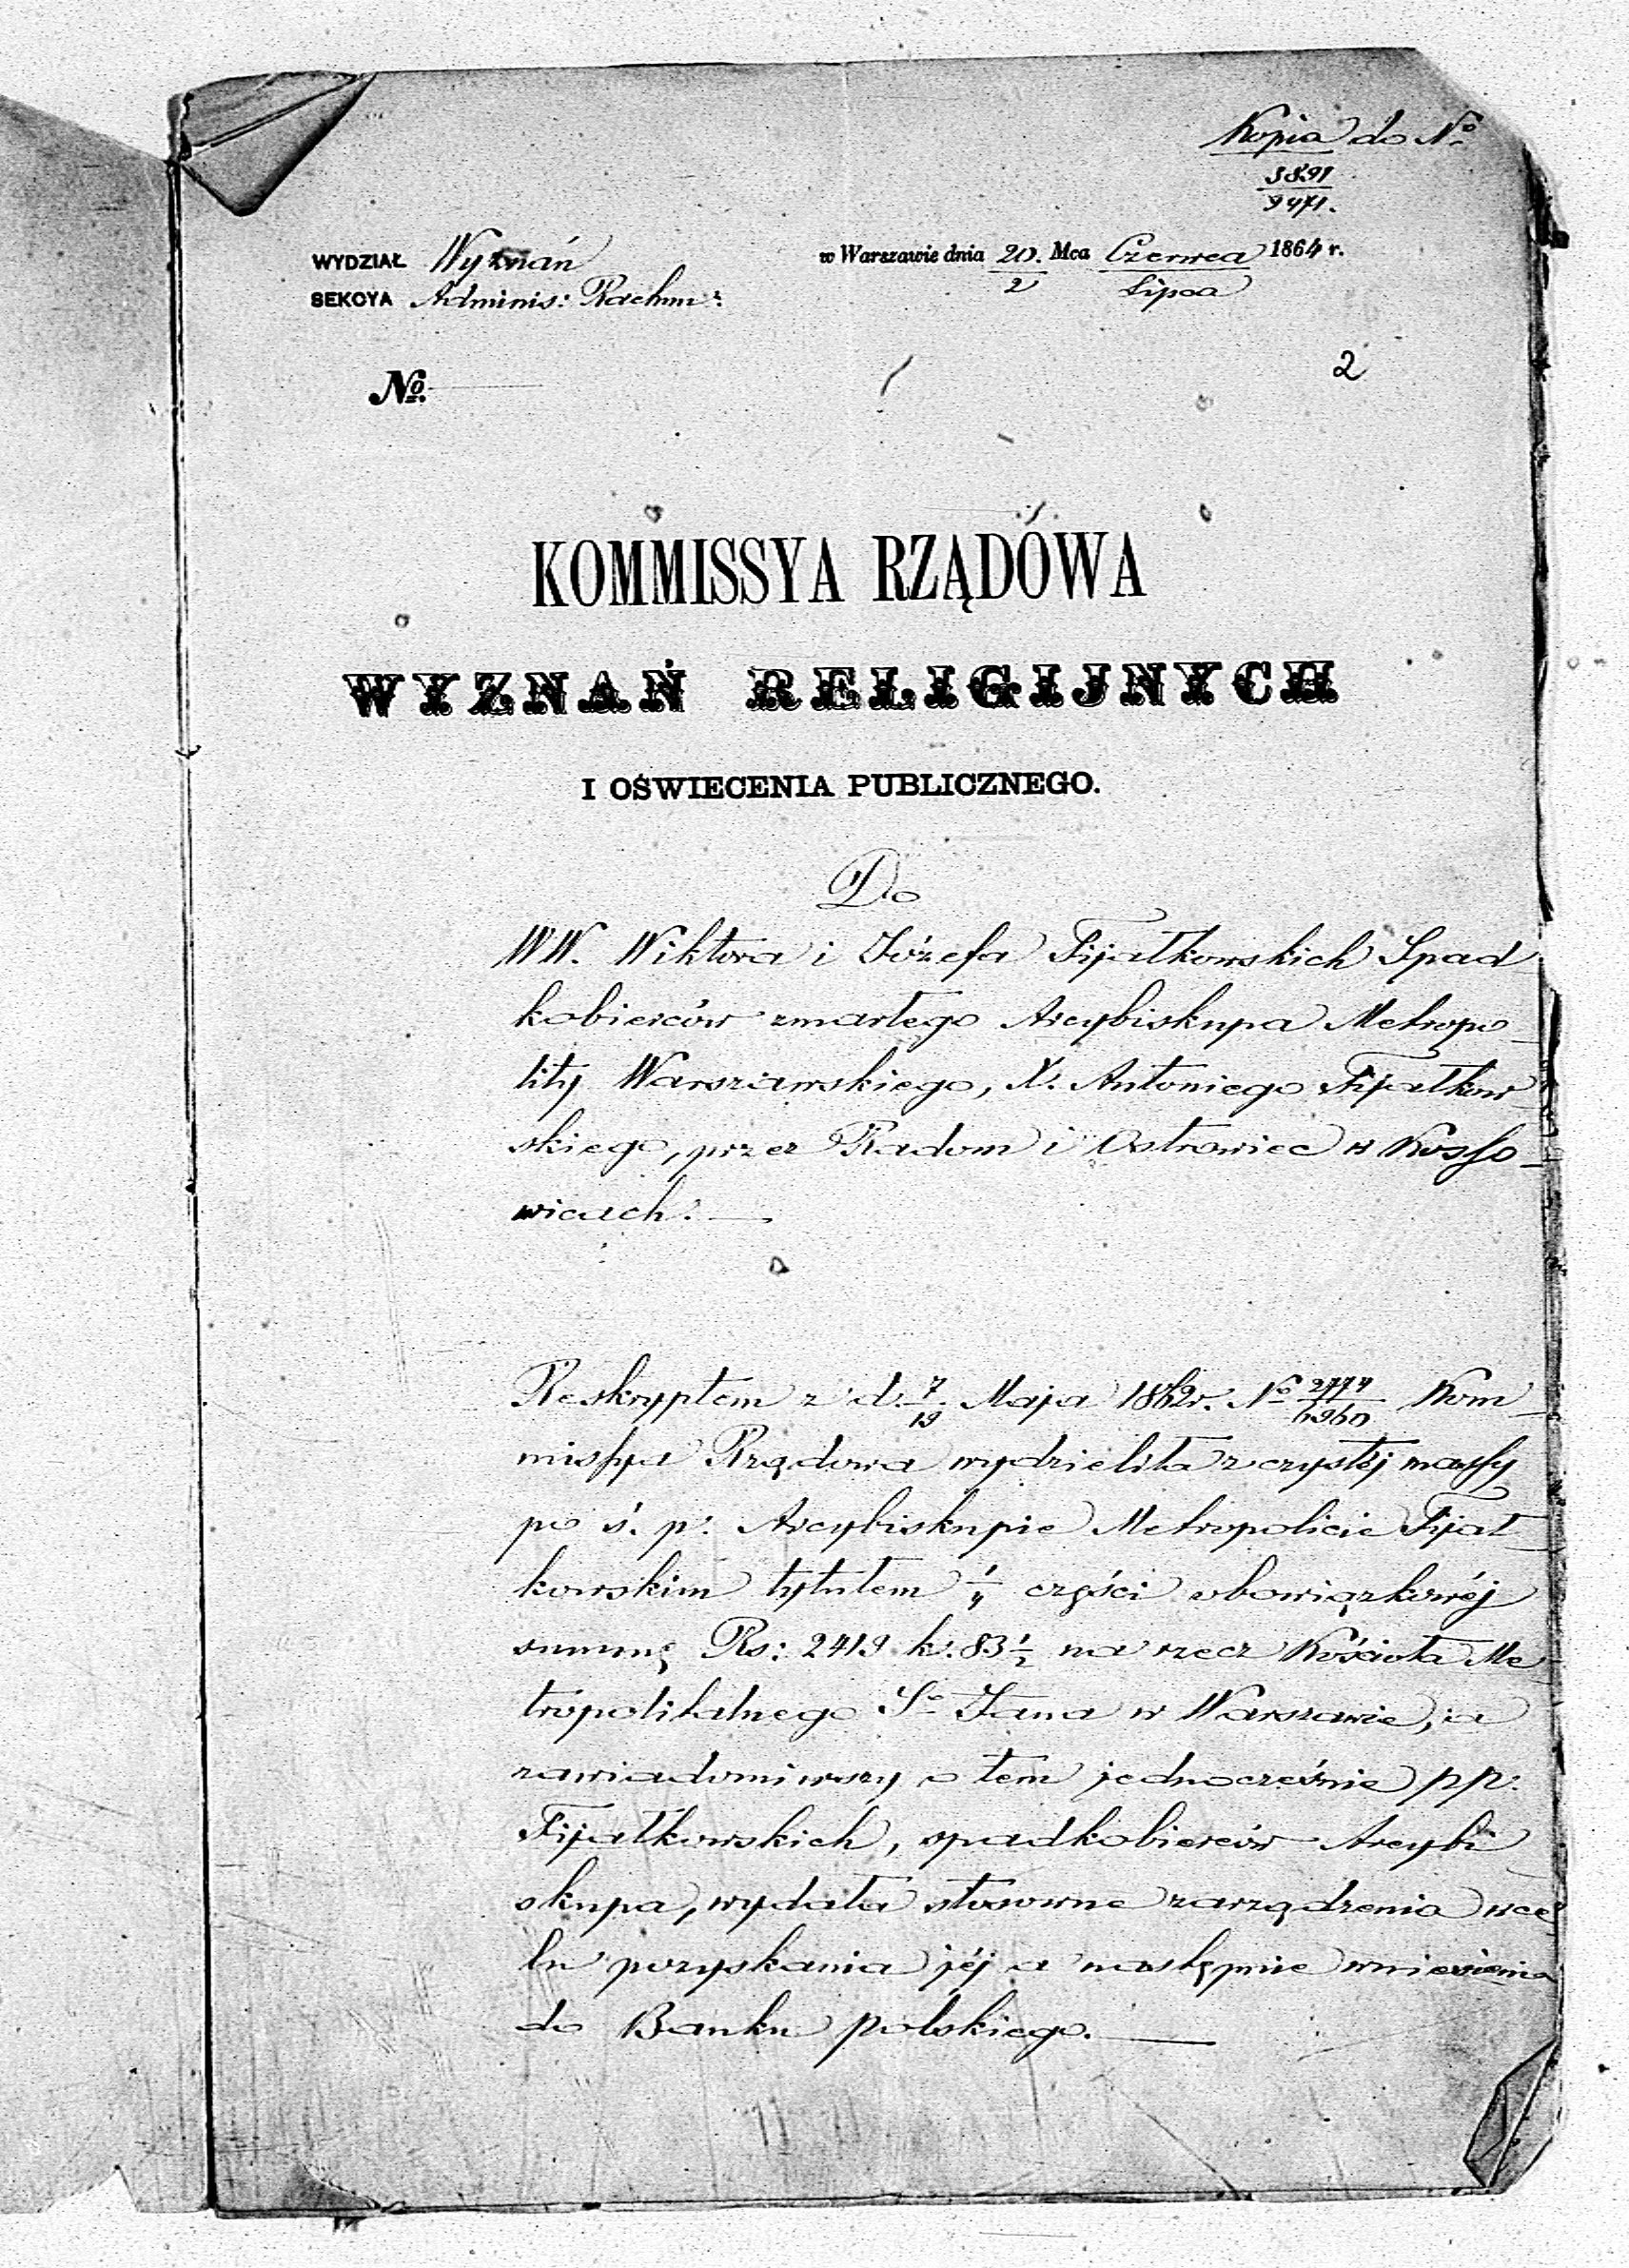 Kopia do Nº
3891
9471.
WYDZIAŁ Wyznań
SEKCYA Adminis: Rachun:
w Warszawie dnia 20. Mca Czerwca 1864 r.
2 Lipca
Nº.
2
KOMMISSYA RZĄDOWA
WYZNAŃ RELIGIJNYCH
I OŚWIECENIA PUBLICZNEGO.
Do
WW. Wiktora i Józefa Fijałkowskich Spad
kobierców zmarłego Arcybiskupa Metropo-
lity Warszawskiego, X. Antoniego Fijałkow
skiego, przez Radom i Ostrowiec w Kosso-
wicach. —
Reskryptem z d. 7/19 Maja 1862 r. Nº 2774/6960 Kom-
missya Rządowa wydzieliła z czystéj massy
po ś. p. Arcybiskupie Metropolicie Fijał-
kowskim tytułem 1/4 części obowiązkowéj
summę Rs: 2419 k: 83 1/2 na rzecz Kościoła Me-
tropolitalnego Sº Jana w Warszawie, a
zawiadomiwszy o tem jednocześnie pp.
Fijałkowskich, spadkobierców Arcybi
skupa, wydała stosowne zarządzenia w ce-
lu pozyskania jéj a następnie wniesienia
do Banku polskiego. —